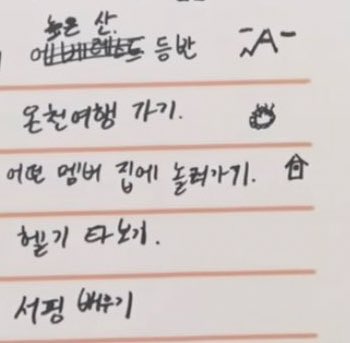 높은 산.
에베레스트 등반
온천여행 가기.
어떤 멤버 집에 놀러가기.
헬기 타보기.
서핑 배우기